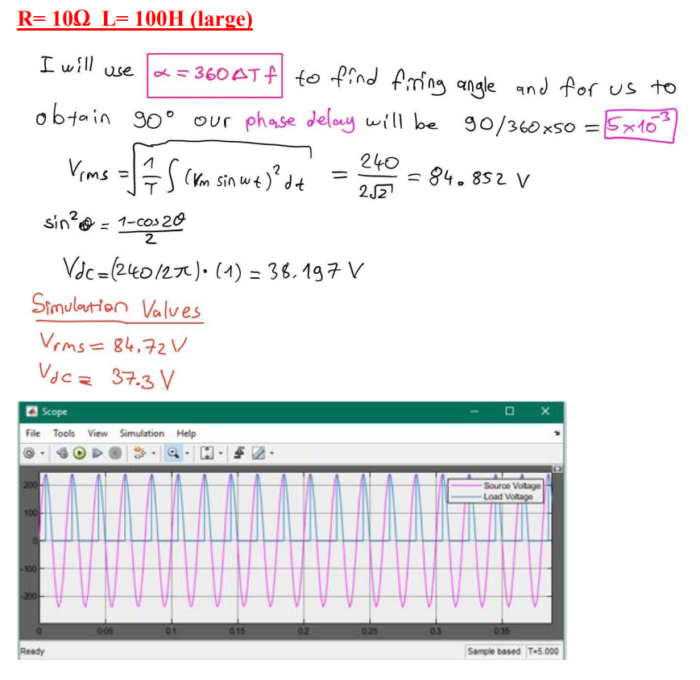 R= 10Ω L= 100H (large)
I will use α = 360 ΔT f to find firing angle and for us to
obtain 90° our phase delay will be 90/360x50 = 5x10⁻³
Vrms = √(1/T ∫ (Vm sin wt)² dt) = 240/2√2 = 84.852 V
sin²θ = 1-cos2θ/2
Vdc=(240/2π)·(1) = 38.197 V
Simulation Values
Vrms = 84.72 V
Vdc = 37.3 V
Scope
File Tools View Simulation Help
Source Voltage
Load Voltage
200
100
0
-100
-200
0 0.05 0.1 0.15 0.2 0.25 0.3 0.35
Ready Sample based T=5.000